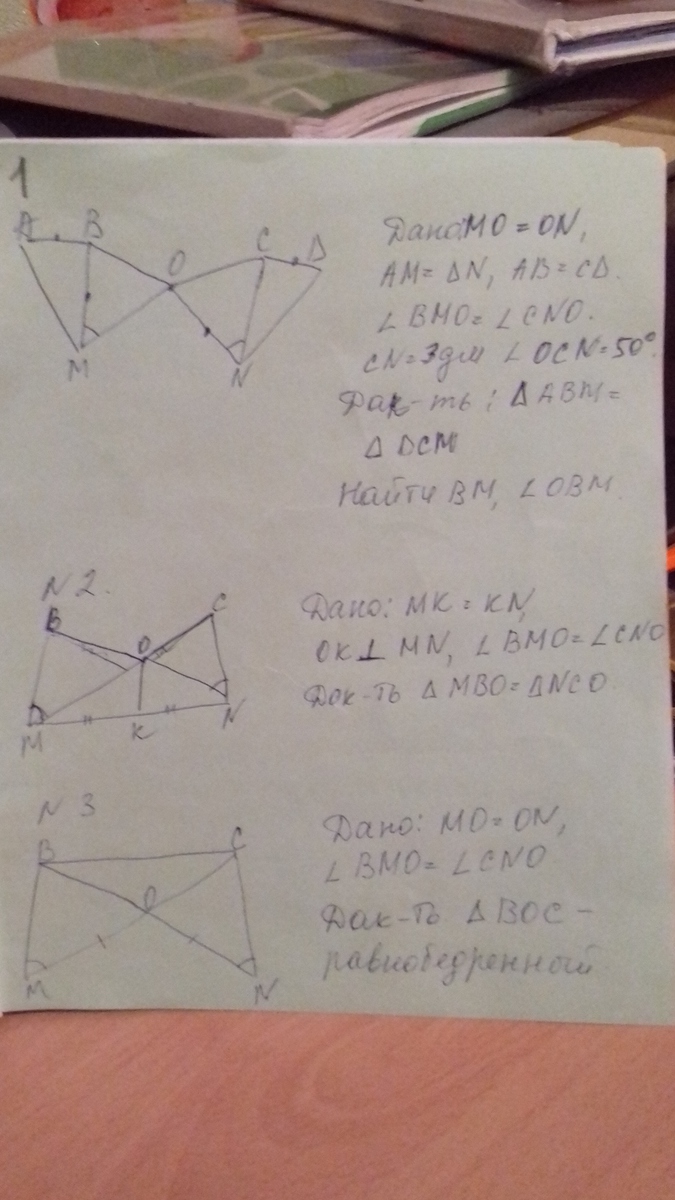 1
A B O C D
M N
Дано: MO = ON,
AM = ΔN, AB = CD.
∠ BMO = ∠ CNO.
CN = 3дм ∠ OCN = 50°.
Док-ть : Δ ABM =
Δ DCM
Найти BM, ∠ OBM.
N 2.
B O C
M K N
Дано: MK = KN,
OK ⊥ MN, ∠ BMO = ∠ CNO
Док-ть Δ MBO = ΔNCO.
N 3
B C
O
M N
Дано: MO = ON,
∠ BMO = ∠ CNO
Док-ть Δ BOC –
равнобедренный